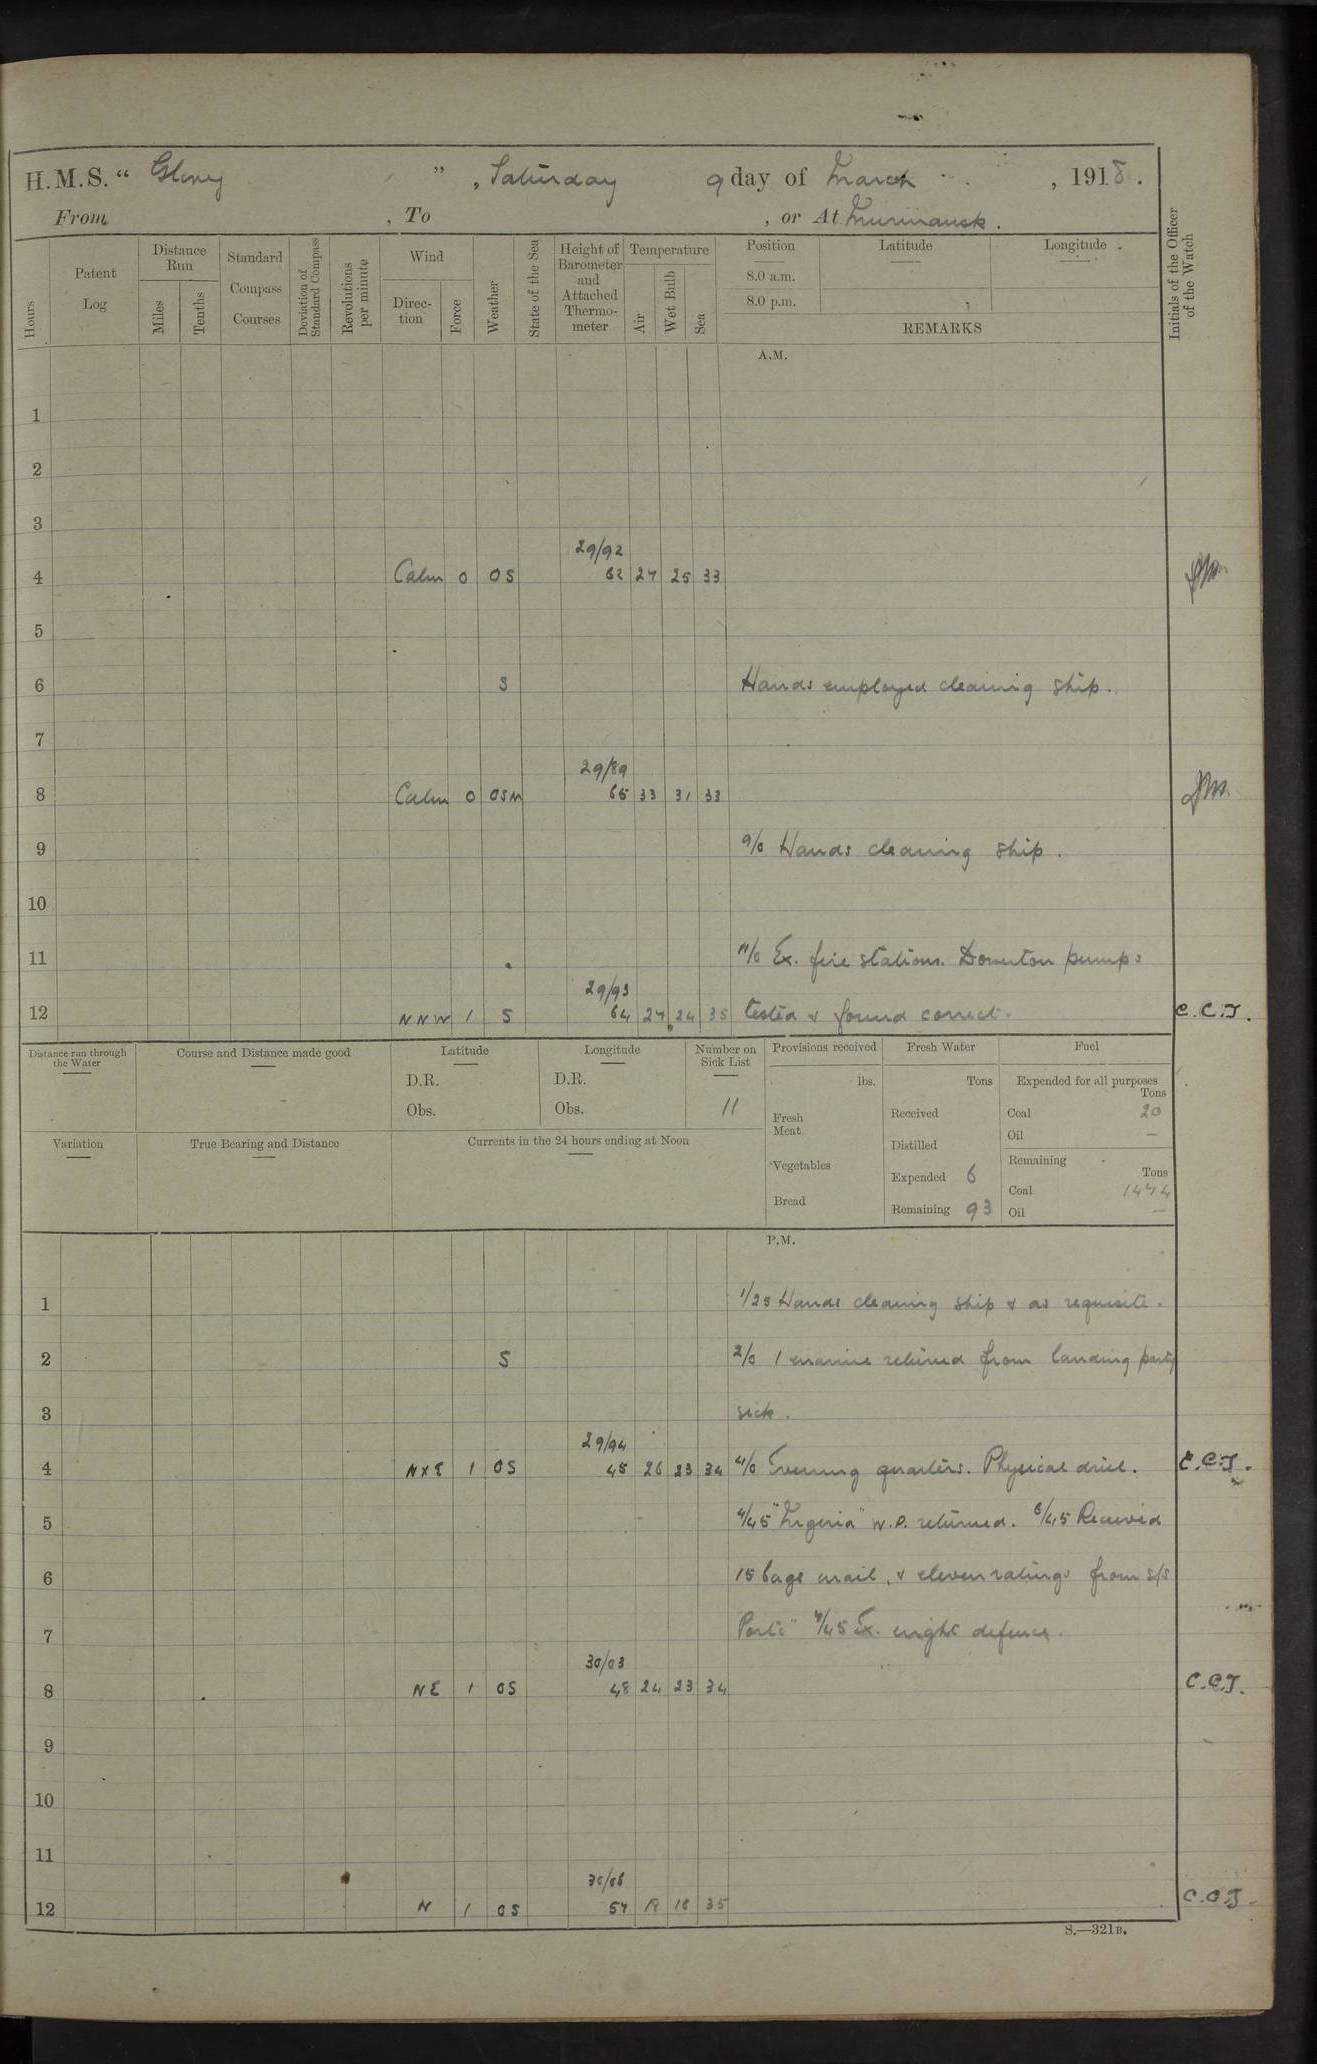 H.M.S. “ Glory ” , Saturday 9 day of March , 1918 .
From , To , or At Murmansk .
Hours
Patent Log
Distance Run
Miles
Tenths
Standard Compass Courses
Deviation of Standard Compass
Revolutions per minute
Wind
Direction
Force
Weather
State of the Sea
Height of Barometer and Attached Thermometer
Temperature
Air
Wet Bulb
Sea
Position Latitude Longitude
8.0 a.m.
8.0 p.m.
REMARKS
Initials of the Officer of the Watch
A.M.
1
2
3
29/92
4 Calm 0 OS 62 27 25 33
5
6 S Hands employed cleaning ship.
7
29/89
8 Calm 0 OSM 65 33 31 33
9 9/0 Hands cleaning ship.
10
11 11/0 Ex. fire stations. Downton pumps
29/93
12 NNW 1 S 64 27 24 35 tested & found correct. C.C.J.
Distance run through the Water
Course and Distance made good
Latitude
D.R.
Obs.
Longitude
D.R.
Obs.
Number on Sick List
11
Provisions received
lbs.
Fresh Meat
Vegetables
Bread
Fresh Water
Tons
Received
Distilled
Expended 6
Remaining 93
Fuel
Expended for all purposes
Tons
Coal 20
Oil —
Remaining
Tons
Coal 1474
Oil —
Variation
True Bearing and Distance
Currents in the 24 hours ending at Noon
P.M.
1 1/25 Hands cleaning ship & as requisite.
2 S 2/0 1 marine returned from landing party
3 sick.
29/94
4 NXE 1 OS 45 26 23 34 4/0 Evening quarters. Physical drill. C.C.J.
5 4/45 W.P. returned. 6/45 Received
6 15 bags mail, & eleven ratings from s/s
7 "Porto" 7/45 Ex. night defence.
30/03
8 NE 1 OS 48 24 23 34 C.C.J.
9
10
11
12 N 1 OS 57 18 35 C.C.J.
S.—321B.